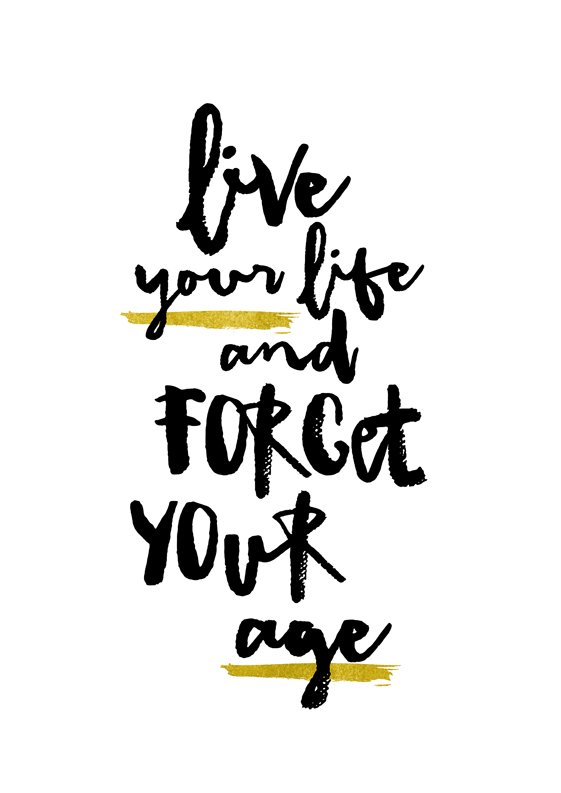 live
your life
and
FORGet
YOuR
age